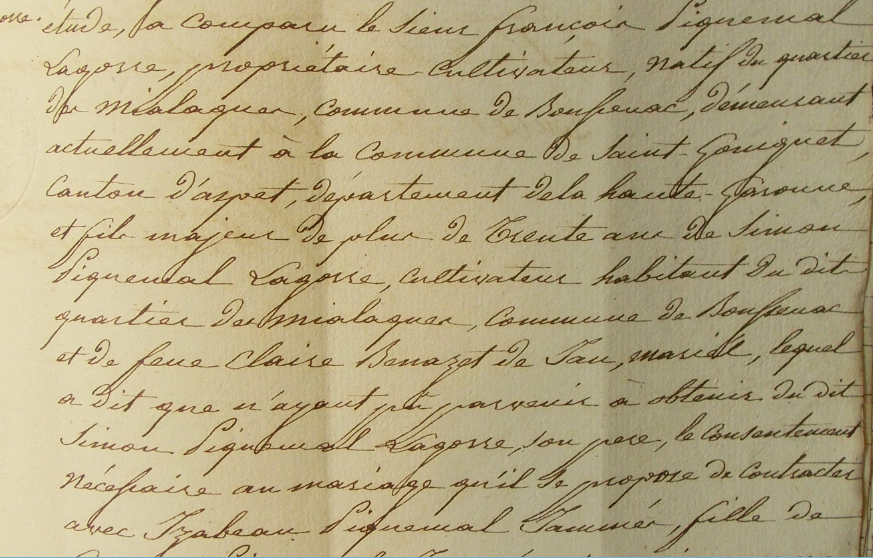 étude, a comparu le sieur françois Piquemal
Lagosse, propriétaire-cultivateur, natif du quartier
des mialaques, commune de Boussenac, démeurant
actuellement à la commune de Saint-Goniguet,
Canton d'aspet, département dela haute-Garonne,
et fils majeur de plus de Trente ans de Simon
Piquemal Lagosse, cultivateur habitant du dit
quartier des mialaques, commune de Boussenac
et de feue Claire Benazet de Jau, mariés, lequel
a dit que n'ayant pu parvenir à obtenir du dit
Simon Piquemal Lagosse, son pere, le consentement
Nécessaire au mariage qu'il se propose de contracter
avec Izabeau Piquemal Jammés, fille de